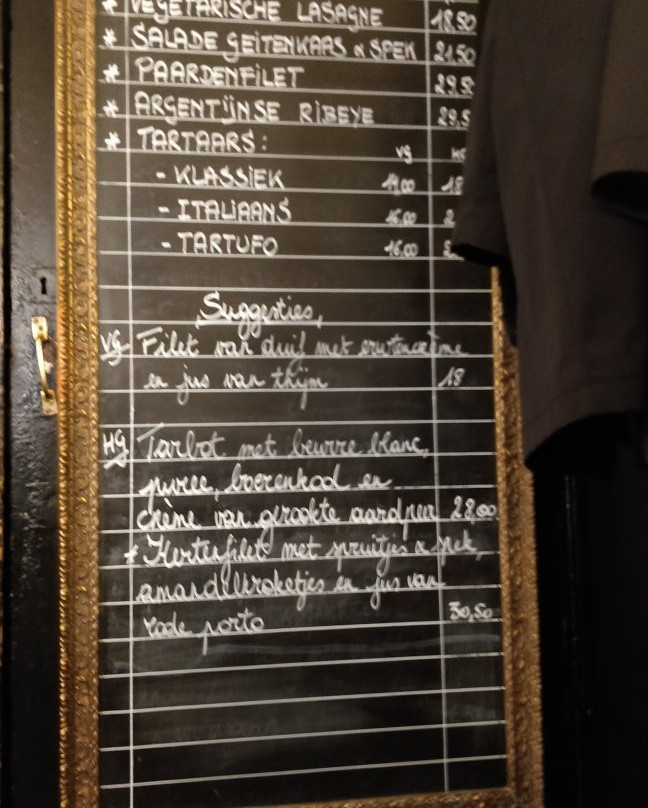 * VEGETARISCHE LASAGNE 18.50
* SALADE GEITENKAAS & SPEK 21.50
* PAARDENFILET 29.5
* ARGENTIJNSE RIBEYE 29.5
* TARTAARS: VG HG
- KLASSIEK 14.00 18
- ITALIAANS 16.00 2
- TARTUFO 16.00
Suggesties,
VG Filet van duif met erwtencrème
en jus van thijm 18
HG Tarbot met beurre blanc,
puree, boerenkool en
crème van gerookte aardpeer 28,00
* Hertenfilet met spruitjes & spek,
amandelkroketjes en jus van
rode porto 30,50